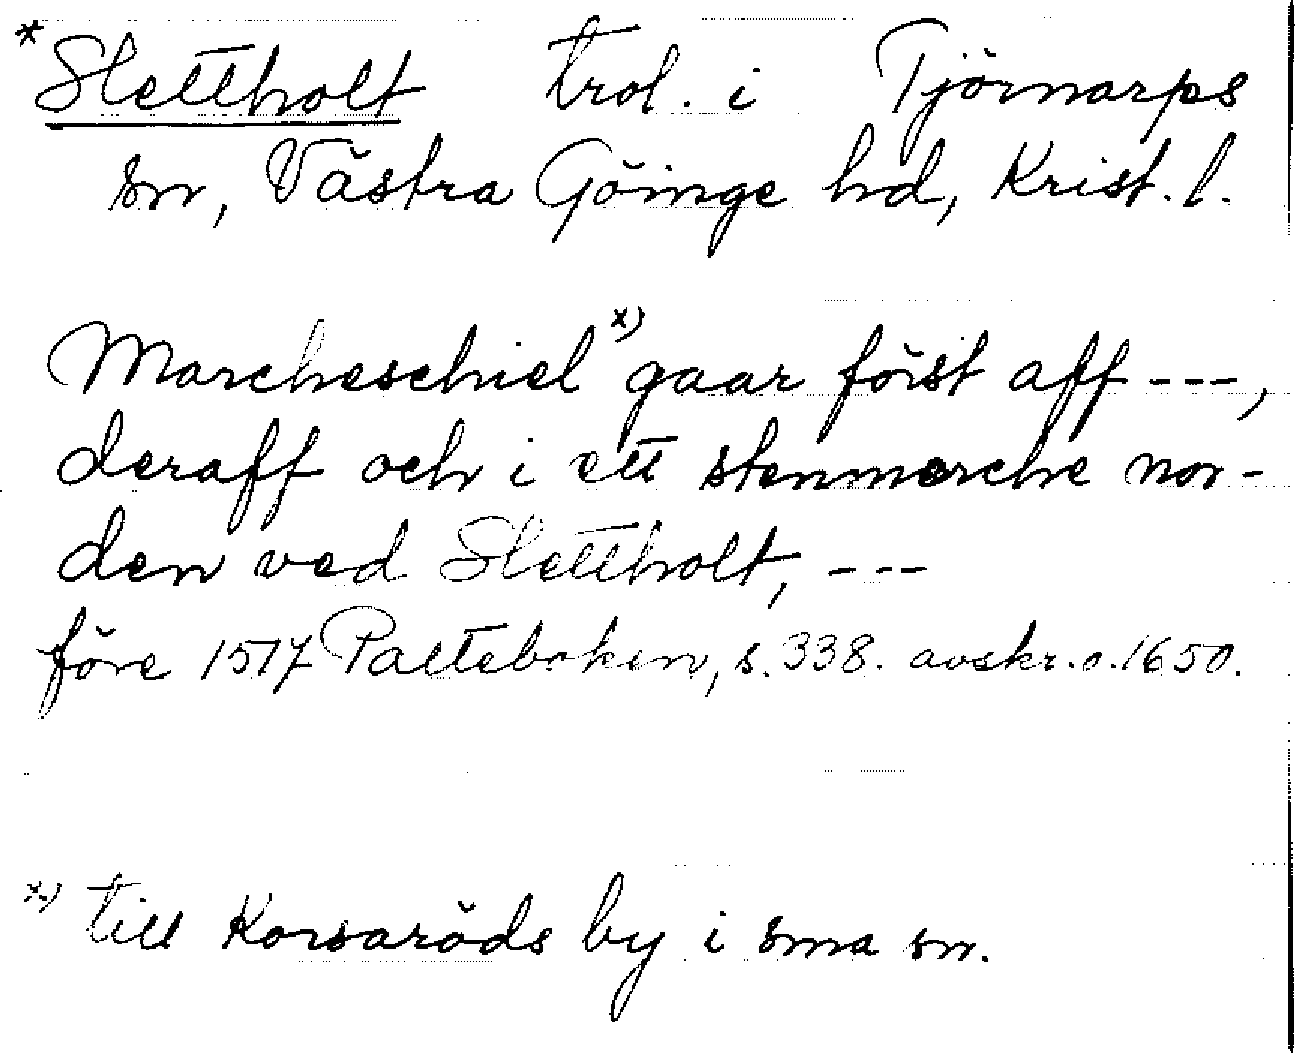 * Slettholt trol. i Tjörnarps
sn, Västra Göinge hd, Krist. l.
Marcheschiel x) gaar först aff ---,
deraff och i ett stenmerche nor-
den ved Slettholt, ---
före 1517 Palteboken, s. 338. avskr. o. 1650.
x) till Korsaröds by i sma sn.